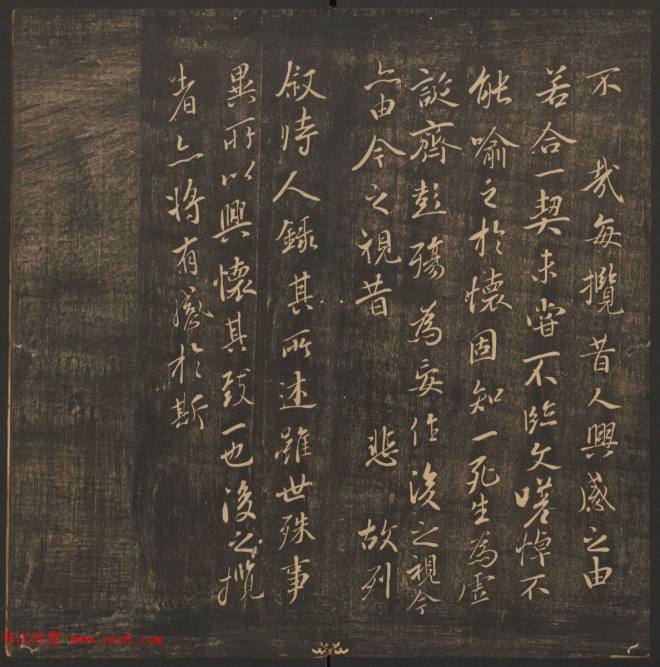 不 哉每攬昔人興感之由
若合一契未嘗不臨文嗟悼不
能喻之於懷固知一死生為虛
誕齊彭殤為妄作後之視今
亦由今之視昔 悲 故列
叙時人錄其所述雖世殊事
異所以興懷其致一也後之攬
者亦將有感於斯
www.yac8.com